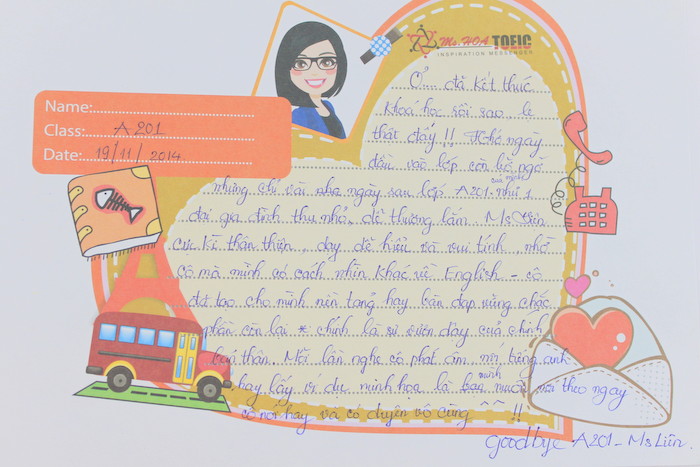 Ms.HOA TOEIC
INSPIRATION MESSENGER
Name:
Class: A201
Date: 19/11/2014
Ơ... đã kết thúc
khoá học rồi sao, lẹ
thật đấy!! Mới ngày
đầu vào lớp còn bỡ ngỡ
nhưng chỉ vài ngày sau lớp A201 của mình như 1
đại gia đình thu nhỏ, dễ thương lắm. Ms Liên
cực kì thân thiện, dạy dễ hiểu và vui tính, nhờ
cô mà mình có cách nhìn khác về English - cô
đã tạo cho mình nền tảng hay bàn đạp vững chắc,
phần còn lại * chính là sự của chính
bản thân. Mỗi lần nghe cô phát âm, nói tiếng anh
hay lấy ví dụ minh họa là mình muốn nói theo ngay
cô nói hay và có duyên vô cùng ^^ !!
Goodbye A201 - Ms Liên.